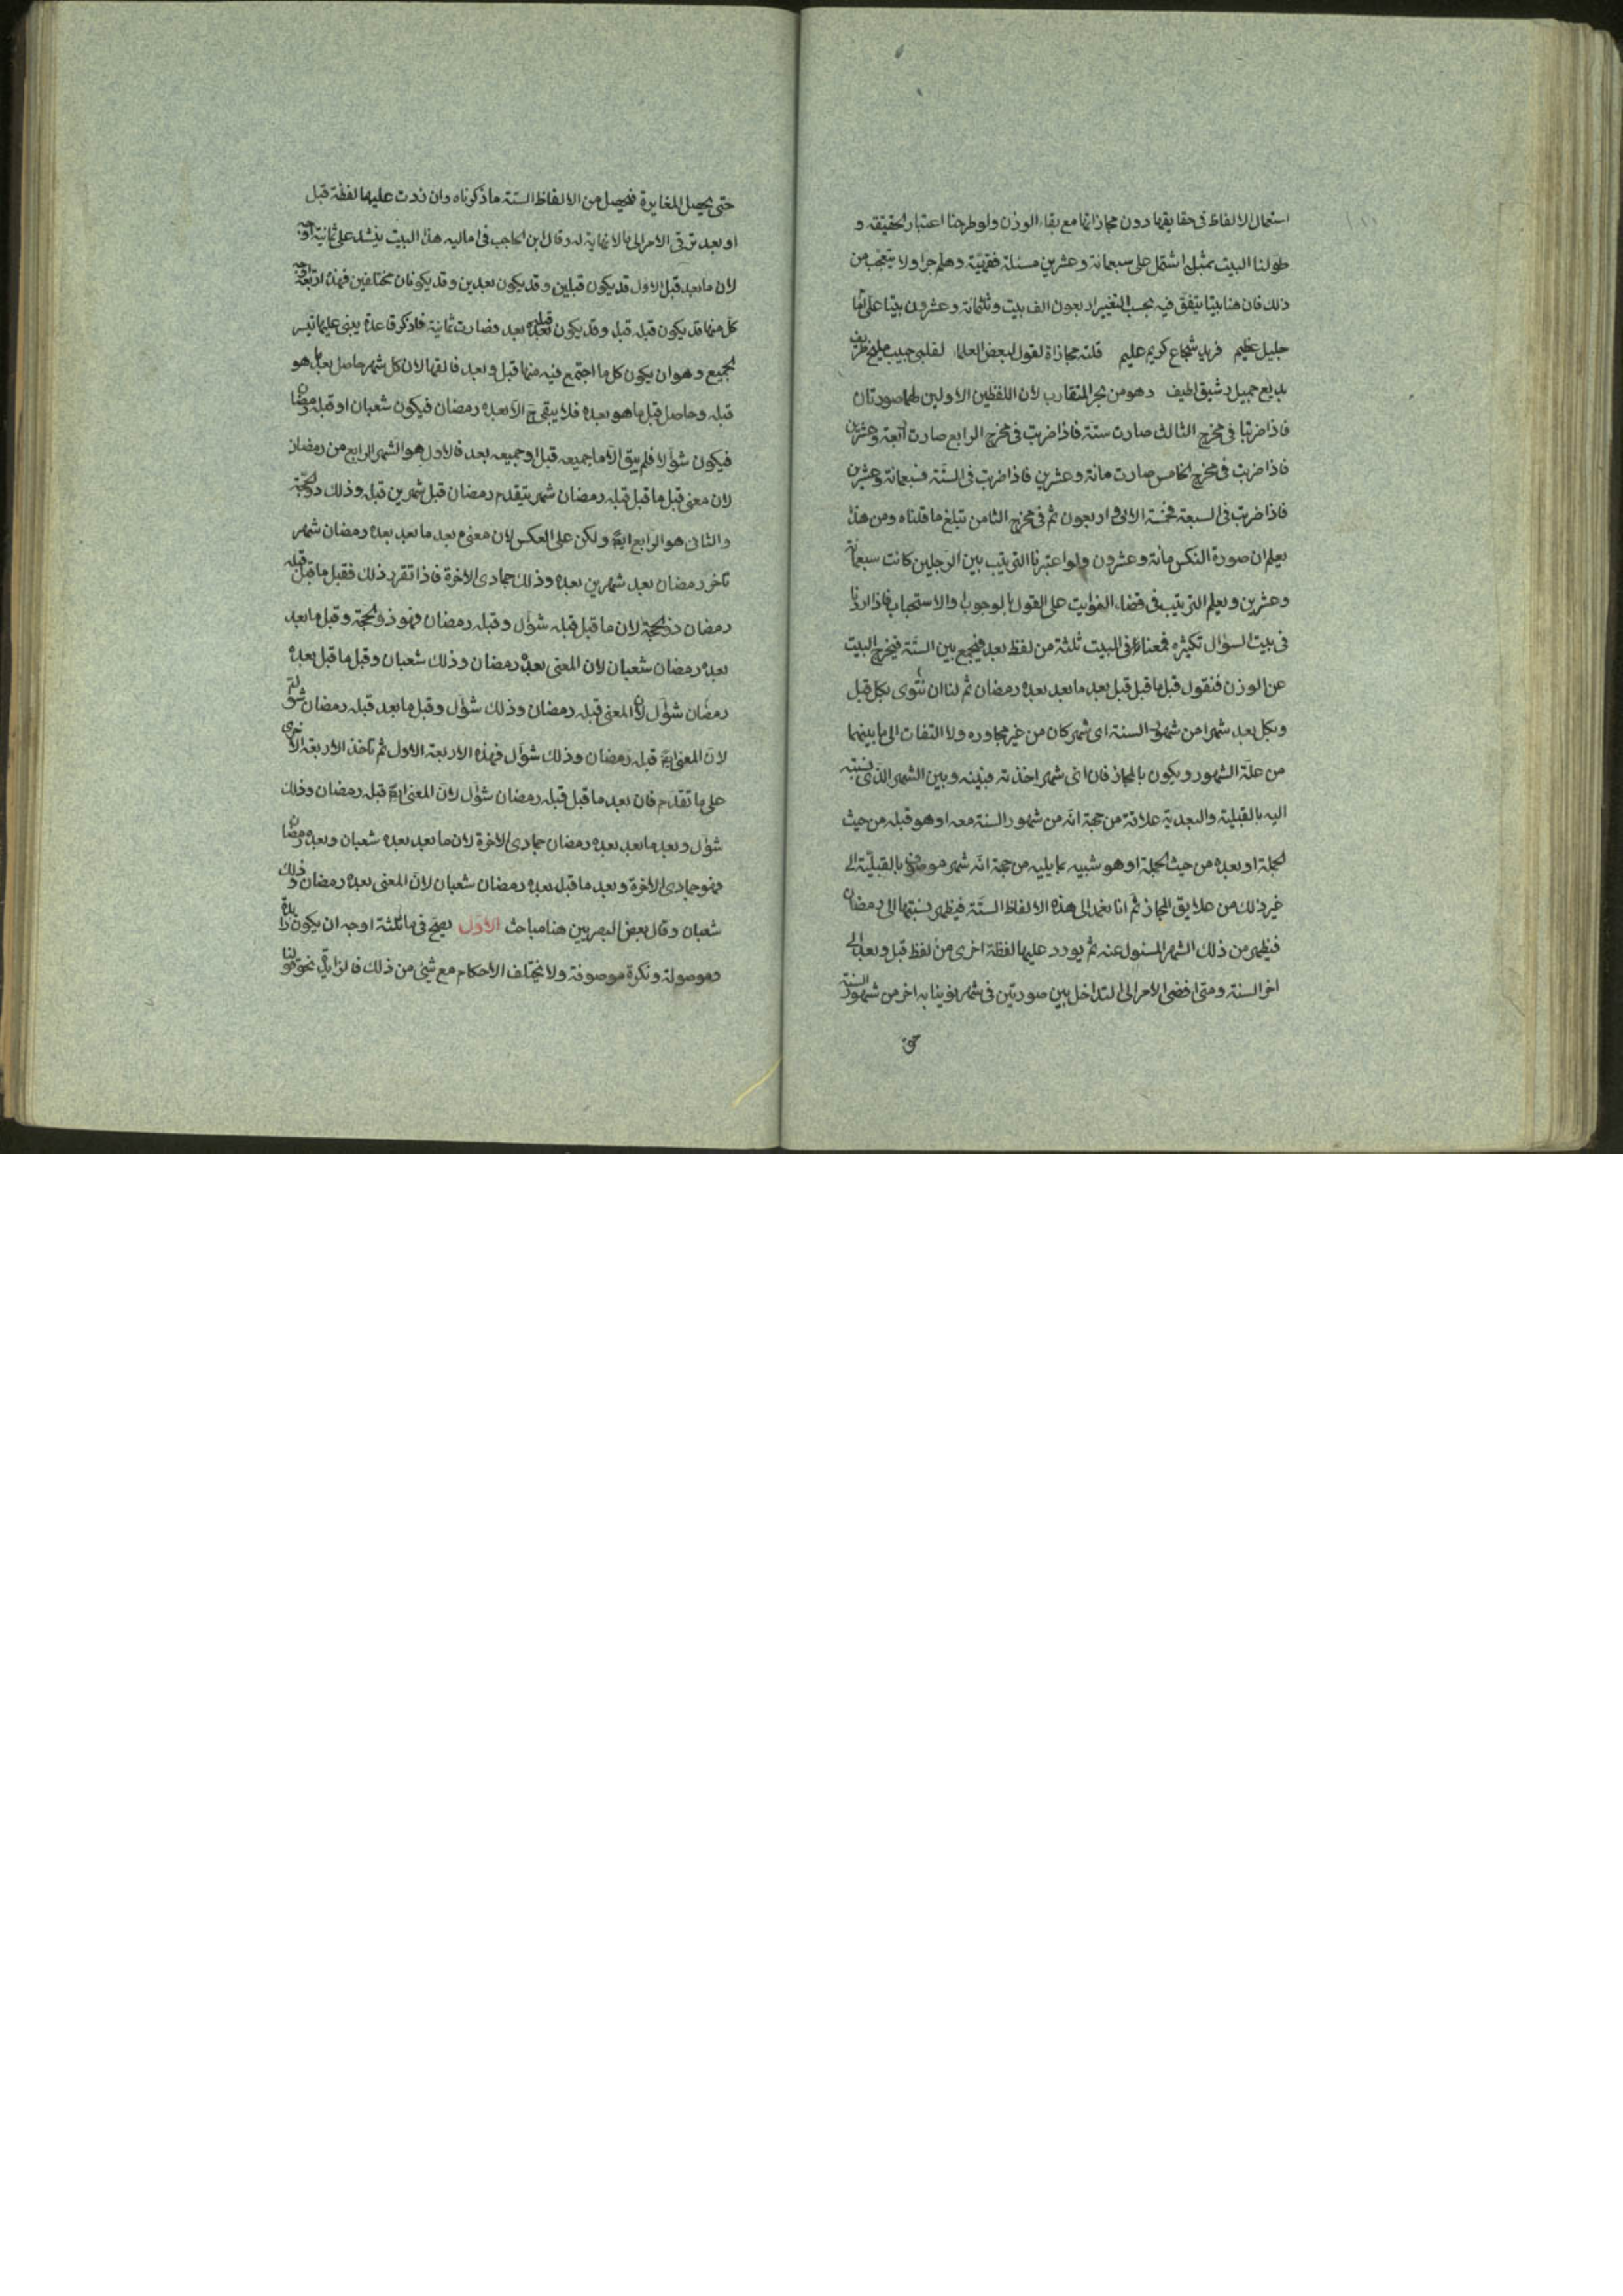 استعمال الالفاظ فى حقايقها دون مجازاتها مع بقاء الوزن ولو طرحنا اعتبار الحقيقة و
طولنا البيت بمثلها اشتمل على سبعمائة وعشرين مسئلة فقهيّة وهلم جرا ولا يتعجب من
ذلك فان هنا بيتا يتفق فيه بحسب التغيير اربعون الف بيت وثلثمائة وعشرون بيتا على
جليل عظيم فريد شجاع كريم عليم قلته مجازاة لقول بعض العلماء لقلبى حبيب مليح ظريف
بديع جميل رشيق لطيف وهو من بحر المتقارب لان اللفظين الاولين لهما صورتان
فاذا ضربتا فى مخرج الثالث صارت ستة فاذا ضربت فى مخرج الرابع صارت اربعة وعشرين
فاذا ضربت فى مخرج الخامس صارت مائة وعشرين فاذا ضربت فى الستّة فسبعمائة وعشرين
فاذا ضربت فى السبعة فخمسة الاف واربعون ثم فى مخرج الثامن تبلغ ما قلناه ومن هذا
يعلم ان صورة النكس مائة وعشرون ولو اعتبرنا الترتيب بين الرجلين كانت سبعمائة
وعشرين ويعلم الترتيب فى قضاء الفوايت على القول بالوجوب او الاستحباب فاذا اردنا
فى بيت السؤال تكثيره فمعنا فى البيت ثلثة من لفظ بعد فيجمع بين الستّة فيخرج البيت
عن الوزن فنقول قبل ما قبل قبل بعد ما بعد بعده رمضان ثم لنا ان ننوى بكل قبل
وبكل بعد شهرا من شهور السنة اى شهر كان من غير مجاوره ولا التفات الى ما بينهما
من علّة الشهور ويكون بالمجاز فان اىّ شهر اخذته فبينه وبين الشهر الذى نسبته
اليه بالقبلية والبعدية علاقة من جهة انّه من شهور السنة معه او هو قبله من حيث
الجملة او بعده من حيث الجملة او هو شبيه بما يليه من جهة انّه شهر موصوف بالقبليّة الى
غير ذلك من علايق المجاز ثم انا نعمد الى هذه الالفاظ الستّة فيظهر نسبتها الى رمضان
فيظهر من ذلك الشهر المسئول عنه ثم يورد عليها لفظة اخرى من لفظ قبل وبعد الى
اخر السنة ومتى افضى الامر الى التداخل بين صورتين فى شهر نوينا به اخر من شهور السنة
حتى
حتى يحصل المغايرة فيحصل من الالفاظ الستّة ما ذكرناه وان زدت عليها لفظة قبل
او بعد ترقى الامر الى ما لا نهاية له وقال ابن الحاجب فى اماليه هذا البيت ينشد على ثمانية اوجه
لان ما بعد قبل الاول قد يكون قبلين وقد يكون بعدين وقد يكونان مختلفين فهذه اربعة اوجه
كل منها قد يكون قبله قبل وقد يكون قبله بعد فصارت ثمانية فاذكر قاعدة يبنى عليها تفسير
الجميع وهو ان يكون كل ما اجتمع فيه منها قبل وبعد فالغها لان كل شهر حاصل بعد ما هو
قبله وحاصل قبل ما هو بعده فلا يبقى ح الّا بعده رمضان فيكون شعبان او قبله رمضان
فيكون شوّالا فلم يبق الّا ما جميعه قبل او جميعه بعد فالاول هو الشهر الرابع من رمضان
لان معنى قبل ما قبل قبله رمضان شهر يتقدم رمضان قبل شهرين قبله وذلك ذو الحجّة
والثانى هو الرابع ايضا ولكن على العكس لان معنى بعد ما بعد بعده رمضان شهر
تاخر رمضان بعد شهرين بعده وذلك جمادى الاخرة فاذا تقرر ذلك فقبل ما قبل قبله
رمضان ذو الحجة لان ما قبل قبله شوّال وقبله رمضان فهو ذو الحجّة وقبل ما بعد
بعده رمضان شعبان لان المعنى بعده رمضان وذلك شعبان وقبل ما قبل بعده
رمضان شوّال لان المعنى قبله رمضان وذلك شوّال وقبل ما بعد قبله رمضان شوّال
لانّ المعنى ايضا قبله رمضان وذلك شوّال فهذه الاربعة الاول ثم تاخذ الاربعة الاخرى
على ما تقدّم فان بعد ما قبل قبله رمضان شوّال لانّ المعنى ايضا قبله رمضان وذلك
شوّال وبعد ما بعد بعده رمضان جمادى الاخرة لان ما بعد بعده شعبان وبعده رمضان
فهو جمادى الاخرة وبعد ما قبل بعده رمضان شعبان لانّ المعنى بعده رمضان وذلك
شعبان وقال بعض البصريين هنا مباحث الاوّل يصحّ فى ما ثلثة اوجه ان يكون زائدة
وموصولة ونكرة موصوفة ولا يختلف الاحكام مع شئ من ذلك فالزايدة نحو قولنا